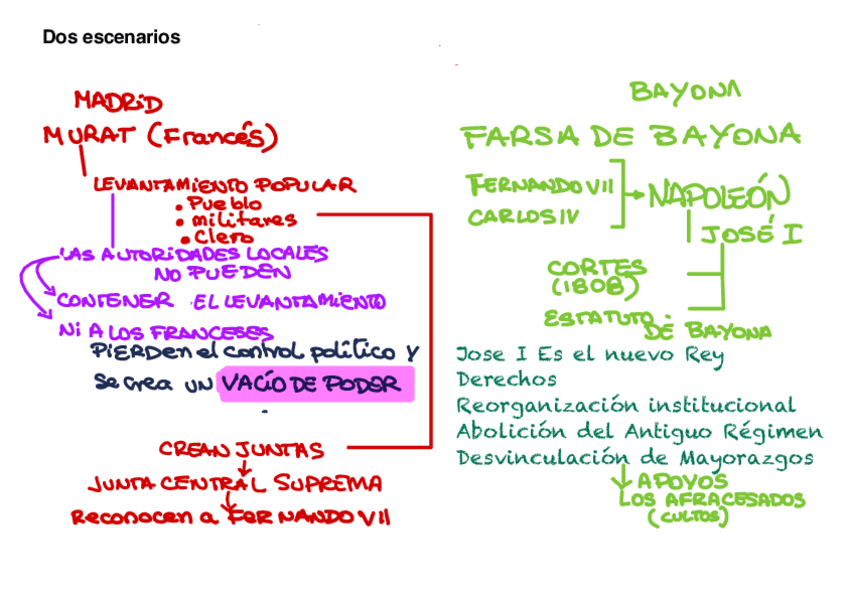 Dos escenarios
MADRID
MURAT (Francés)
LEVANTAMIENTO POPULAR
• Pueblo
• militares
• Clero
LAS AUTORIDADES LOCALES
NO PUEDEN
CONTENER EL LEVANTAMIENTO
Ni A LOS FRANCESES
PIERDEN el control político Y
se crea un VACÍO DE PODER
CREAN JUNTAS
JUNTA CENTRAL SUPREMA
Reconocen a FERNANDO VII
BAYONA
FARSA DE BAYONA
FERNANDO VII
CARLOS IV
NAPOLEÓN
JOSÉ I
CORTES
(1808)
ESTATUTO
DE BAYONA
Jose I Es el nuevo Rey
Derechos
Reorganización institucional
Abolición del Antiguo Régimen
Desvinculación de Mayorazgos
APOYOS
LOS AFRACESADOS
(CULTOS)